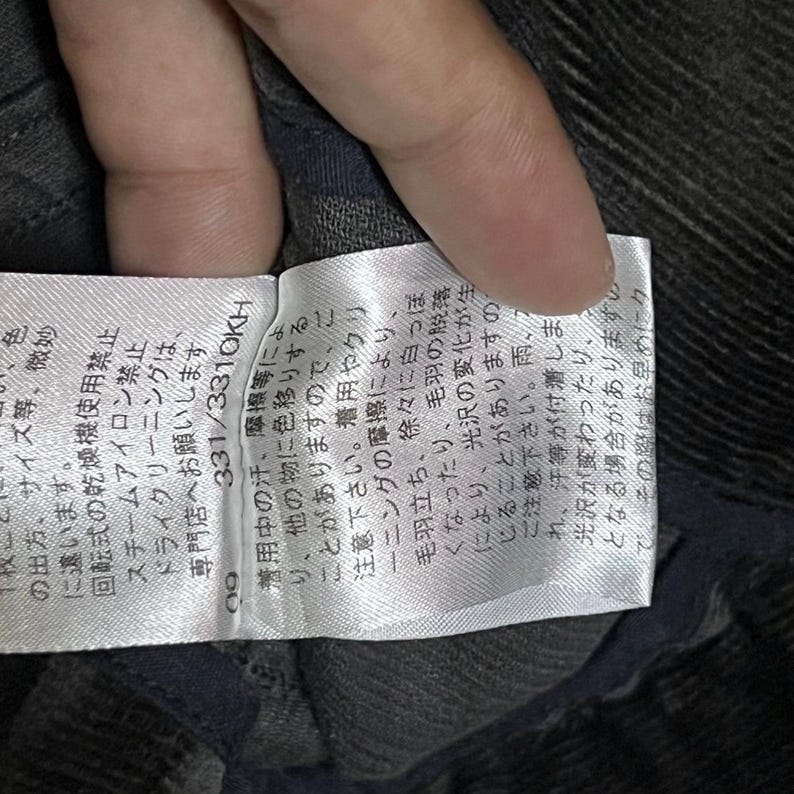 の出方、サイズ等、微妙
に違います。
回転式の乾燥機使用禁止
スチームアイロン禁止
ドライクリーニングは、
専門店へお願いします
09 331/3310KH
着用中の汗、摩擦等によ
り、他の物に色移りする
ことがありますので、ご
注意下さい。着用やクリ
ーニングの摩擦により、
毛羽立ち、徐々に白っぽ
くなったり、毛羽の脱落
により、光沢の変化が生
じることがありますの
ご注意下さい。雨、
れ、汗等が付着しま
光沢が変わったり、
となる場合がありますの
で、その際はお早めにク